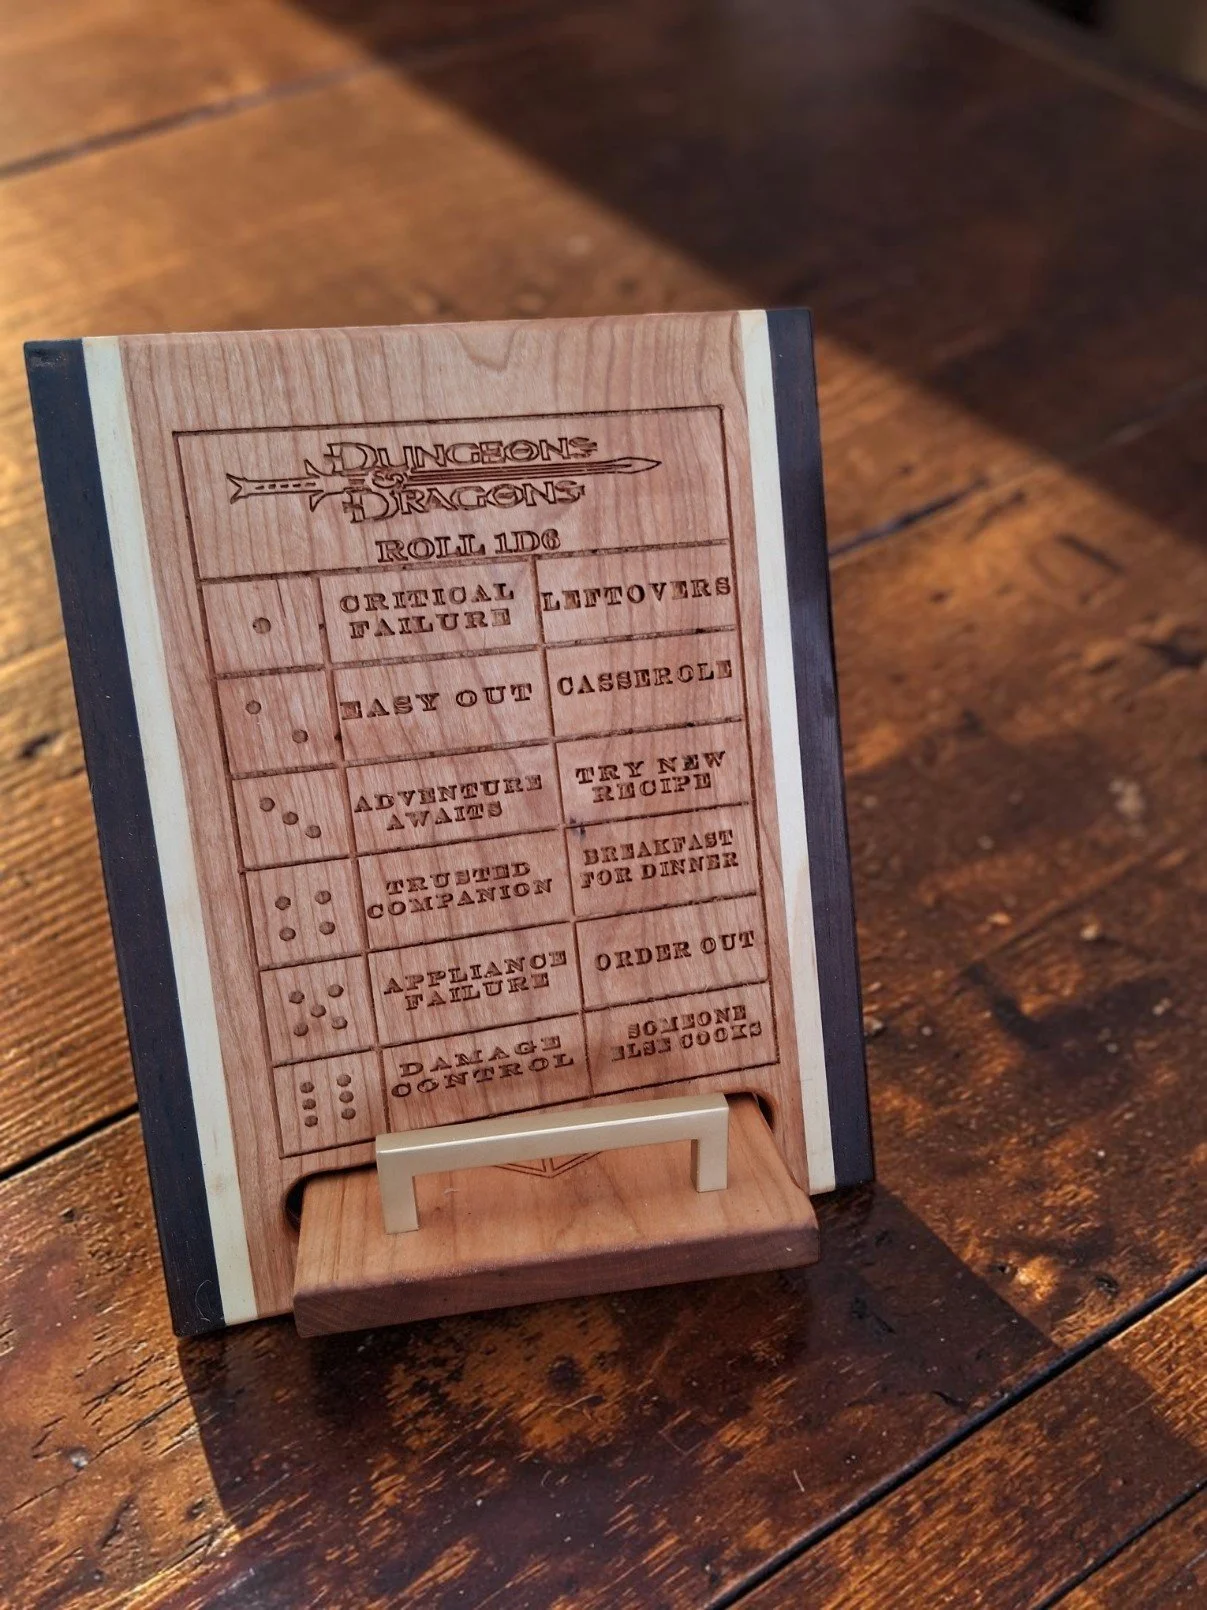 DUNGEONS
&
DRAGONS
ROLL 1D6
CRITICAL
FAILURE
LEFTOVERS
EASY OUT
CASSEROLE
ADVENTURE
AWAITS
TRY NEW
RECIPE
TRUSTED
COMPANION
BREAKFAST
FOR DINNER
APPLIANCE
FAILURE
ORDER OUT
DAMAGE
CONTROL
SOMEONE
ELSE COOKS